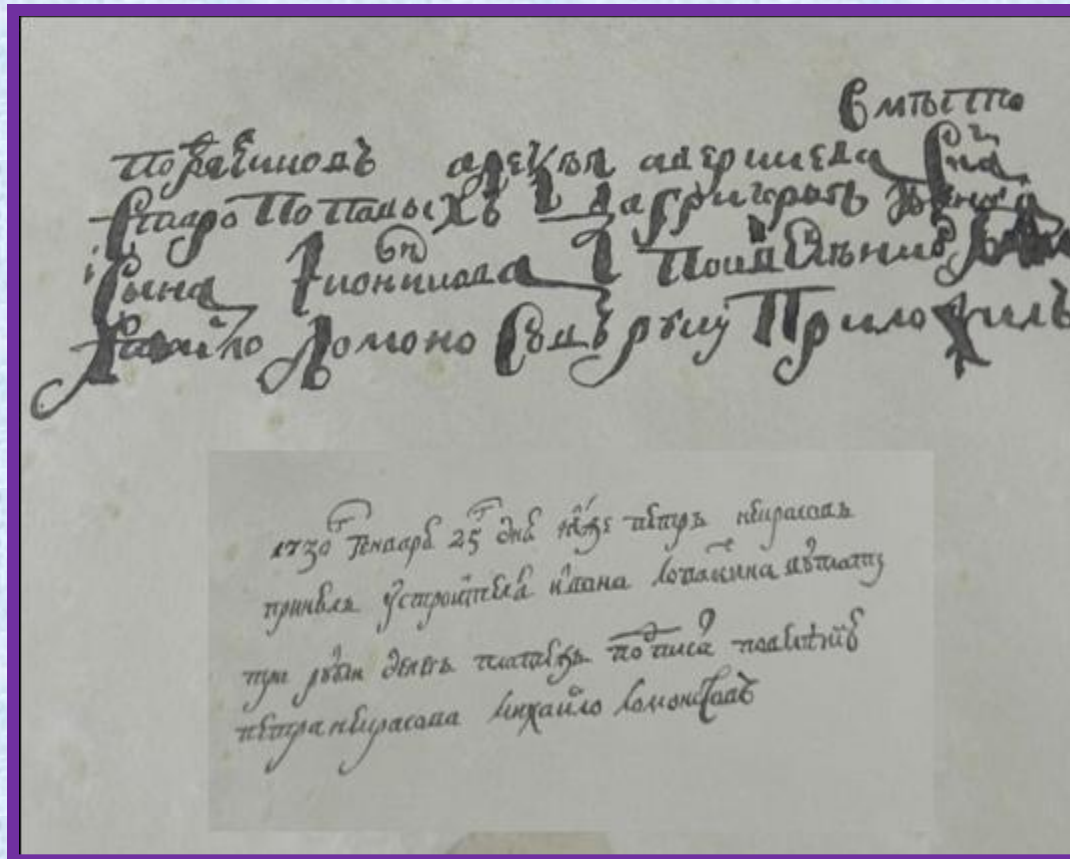 вмѣсто
подрядчиковъ алеѯѣя аверкиева сна
старопоповыхъ i да григорья
сына иконникова i по ихъ велѣнию
михайло ломоносовъ руку приложилъ
1730 генваря 25 дня
принелъ у строителя ивана лопаткина
три рубли денегъ платежъ подписалъ по велѣнию
петра некрасова михайло ломоносовъ